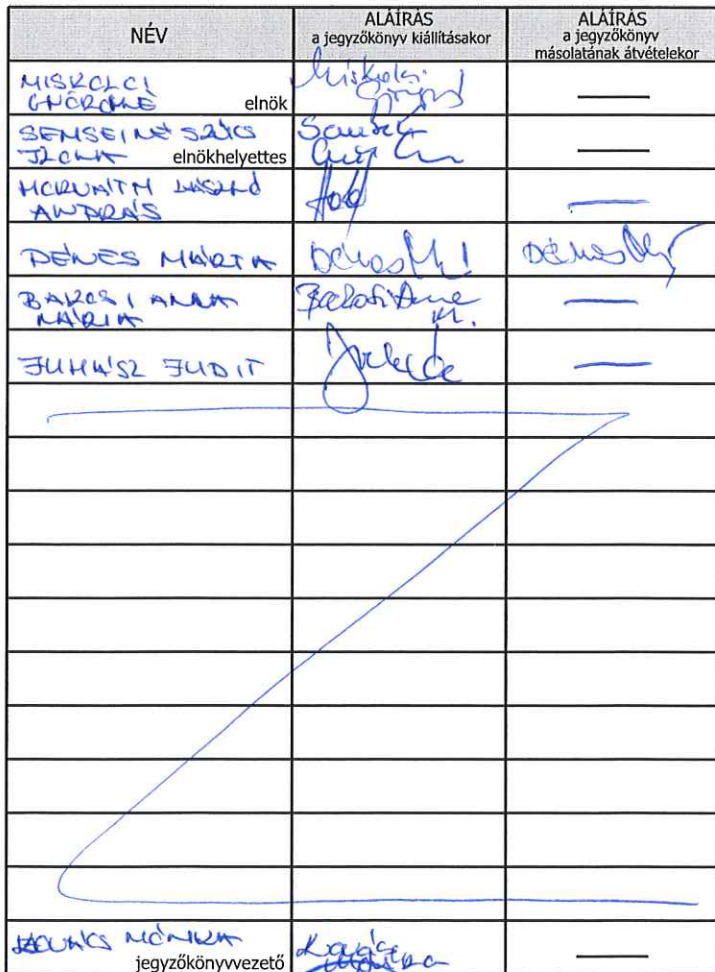 NÉV
ALÁÍRÁS
a jegyzőkönyv kiállításakor
ALÁÍRÁS
a jegyzőkönyv
másolatának átvételekor
MISKOLCI
GYÖRGYNÉ elnök
Miskolci
—
SEMSEINÉ SZŰCS
ILONA elnökhelyettes
—
HORVÁTH LÁSZLÓ
ANDRÁS
—
DÉNES MÁRTA
Dénes M
Dénes M
BAKOSI ANNA
MÁRIA
Bakosi Anna
M.
—
JUHÁSZ JUDIT
—
KOVÁCS MÓNIKA
jegyzőkönyvvezető
Kovács
Mónika
—